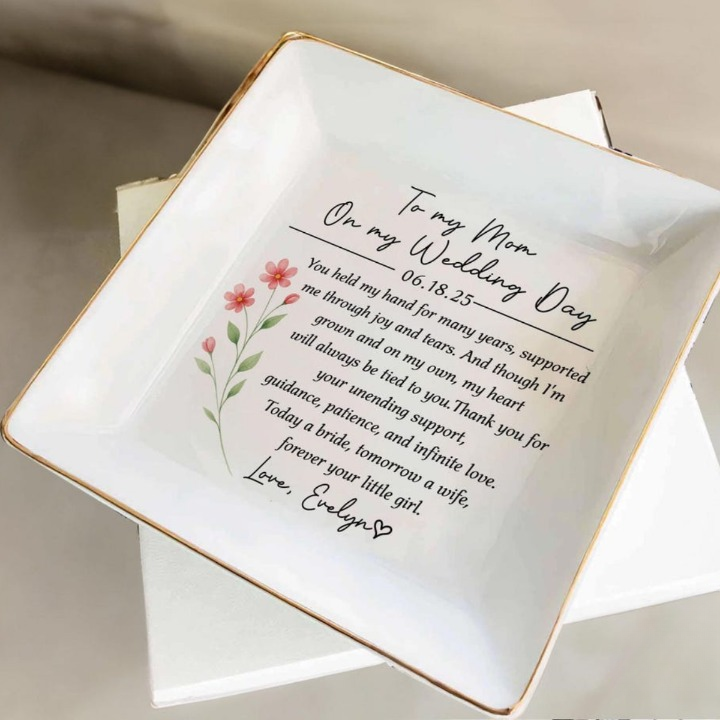 To my Mom
On my Wedding Day
06.18.25
You held my hand for many years, supported
me through joy and tears. And though I'm
grown and on my own, my heart
will always be tied to you.Thank you for
your unending support,
guidance, patience, and infinite love.
Today a bride, tomorrow a wife,
forever your little girl.
Love, Evelyn♡